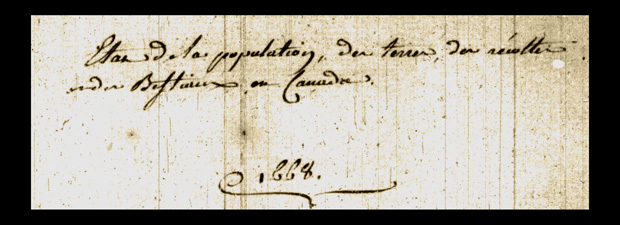 Etat de la population, des terres, des récoltes
et des Bestiaux en Canada.
1668.